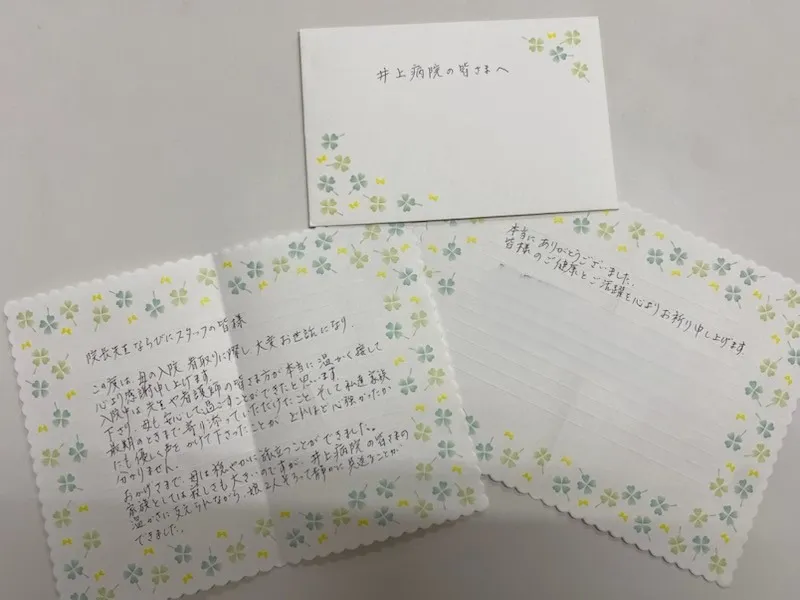 井上病院の皆さまへ
院長先生ならびにスタッフの皆様
この度は、母の入院、看取りに際し、大変お世話になり、
心より感謝申し上げます。
入院中は、先生や看護師の皆さま方が本当に温かく接して
下さり、母も安心して過ごすことができたと思います。
最期のときまで寄り添っていただけたこと、そして私達家族
にも優しく声をかけて下さったことが、どれほど心強かったか
分かりません。
おかげさまで、母は穏やかに旅立つことができました。
家族としては寂しさも大きいのですが、井上病院の皆さまの
温かさに支えられながら、娘二人そろって静かに見送ることが
できました。
本当にありがとうございました。
皆様のご健康とご活躍を心よりお祈り申し上げます。